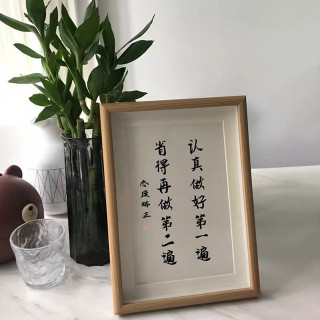 认真做好第一遍
省得再做第二遍
态度端正